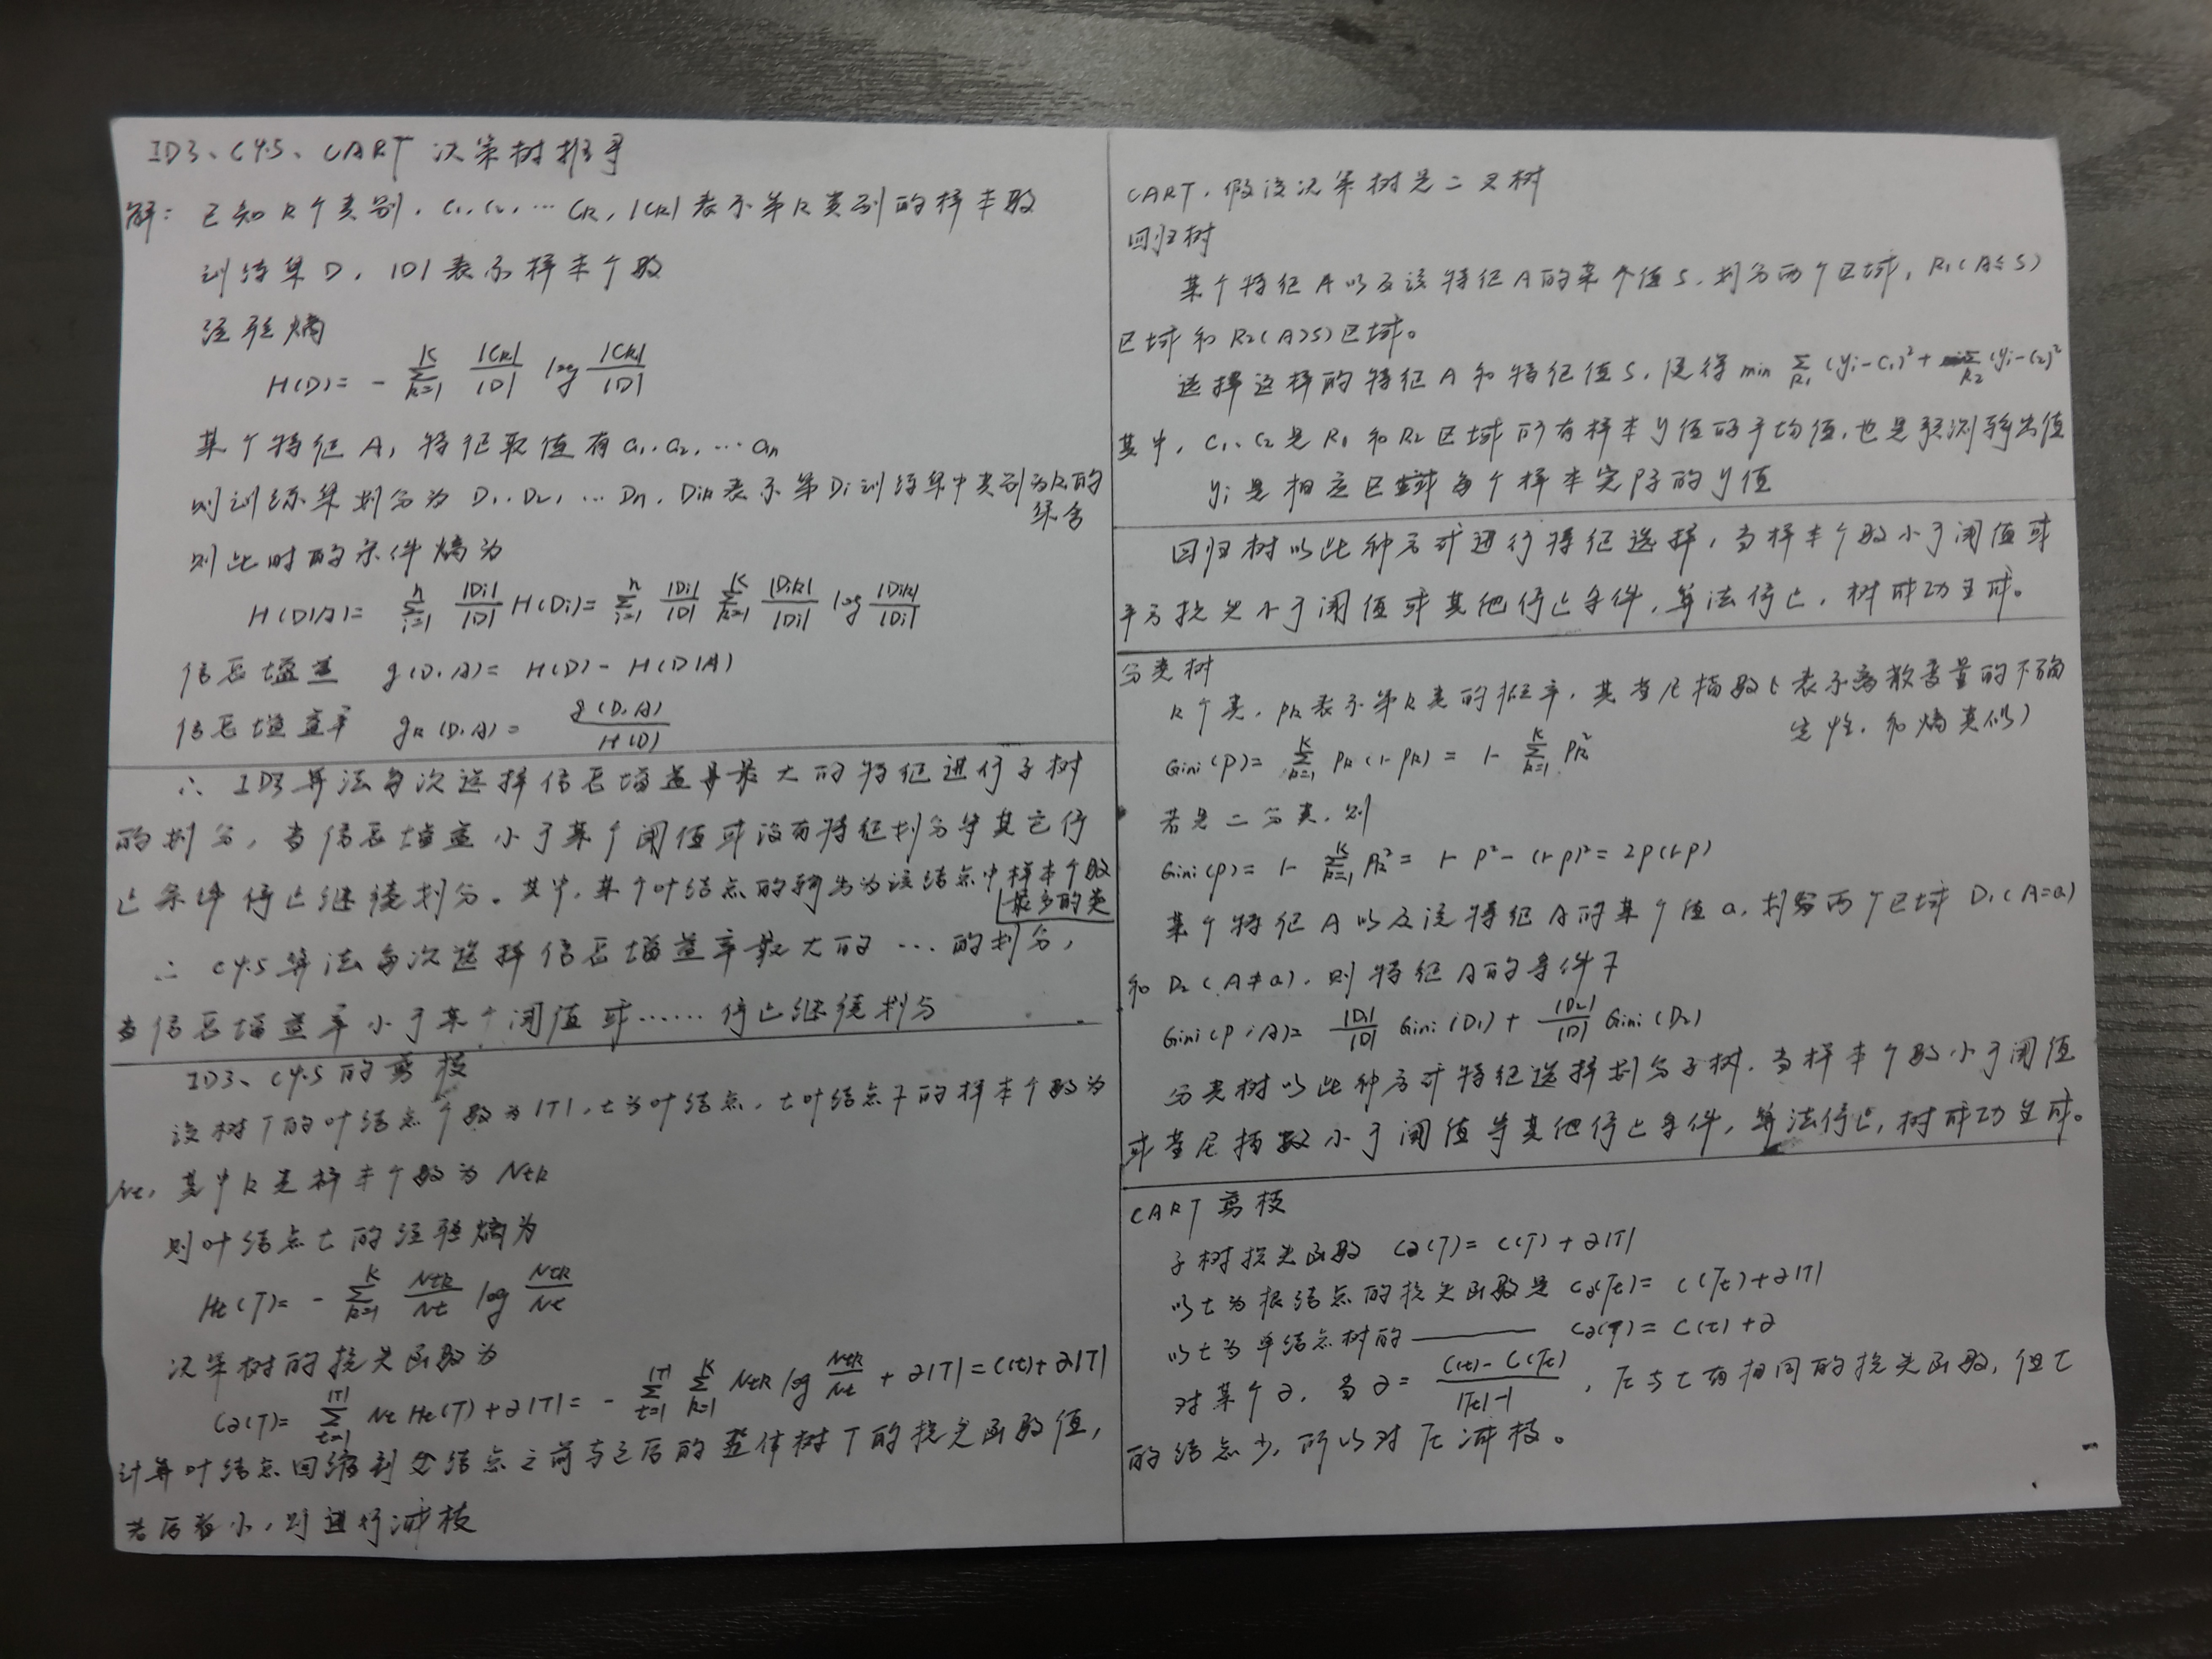 ID3、C4.5、CART 决策树推导
解: 已知K个类别, C1, C2, … CK, |CK|表示第K类别的样本数
训练集D, |D|表示样本个数
经验熵
H(D) = - ∑_{k=1}^{K} |Ck|/|D| log |Ck|/|D|
某个特征A, 特征取值有a1, a2, … an
则训练集划分为D1, D2, … Dn, Dik表示第Di训练集中类别为k的集合
则此时的条件熵为
H(D|A) = ∑_{i=1}^{n} |Di|/|D| H(Di) = ∑_{i=1}^{n} |Di|/|D| ∑_{k=1}^{K} |Dik|/|Di| log |Dik|/|Di|
信息增益 g(D,A) = H(D) - H(D|A)
信息增益率 gR(D,A) = g(D,A)/H(D)
∴ ID3算法每次选择信息增益最大的特征进行子树
的划分, 当信息增益小于某个阈值或没有特征划分等其它停
止条件停止继续划分。其中, 某个叶结点的输出为该结点中样本个数
最多的类
∴ C4.5算法每次选择信息增益率最大的 … 的划分,
当信息增益率小于某个阈值或…… 停止继续划分
ID3、C4.5的剪枝
设树T的叶结点个数为|T|, t为叶结点, t叶结点下的样本个数为
Nt, 其中k类样本个数为Ntk
则叶结点t的经验熵为
Ht(T) = - ∑_{k=1}^{K} Ntk/Nt log Ntk/Nt
决策树的损失函数为
C∂(T) = ∑_{t=1}^{|T|} Nt Ht(T) + ∂|T| = - ∑_{t=1}^{|T|} ∑_{k=1}^{K} Ntk log Ntk/Nt + ∂|T| = C(t) + ∂|T|
计算叶结点回缩到父结点之前与之后的整体树T的损失函数值,
若后者小, 则进行冲枝
CART, 假设决策树是二叉树
回归树
某个特征A以及该特征A的某个值S, 划分两个区域, R1(A≤S)
区域和R2(A>S)区域。
选择这样的特征A和特征值S, 使得 min ∑_{R1} (yi-C1)² + ∑_{R2} (yi-C2)²
其中, C1、C2是R1和R2区域所有样本y值的平均值, 也是预测输出值
yi是相应区域每个样本实际的y值
回归树以此种方式进行特征选择, 当样本个数小于阈值或
平方损失小于阈值或其他停止条件, 算法停止, 树成功生成。
分类树
K个类, Pk表示第k类的概率, 其基尼指数(表示离散变量的不确
定性, 和熵类似)
Gini(p) = ∑_{k=1}^{K} Pk(1-Pk) = 1 - ∑_{k=1}^{K} Pk²
若是二分类, 则
Gini(p) = 1 - ∑_{k=1}^{K} Pk² = 1- p² - (1-p)² = 2p(1-p)
某个特征A以及该特征A的某个值a, 划分两个区域 D1(A=a)
和D2(A≠a), 则特征A的条件下
Gini(P,A) = |D1|/|D| Gini(D1) + |D2|/|D| Gini(D2)
分类树以此种方式特征选择划分子树, 当样本个数小于阈值
或基尼指数小于阈值等其他停止条件, 算法停止, 树成功生成。
CART剪枝
子树损失函数 C∂(T) = C(T) + ∂|T|
以t为根结点的损失函数是 C∂(Tt) = C(Tt) + ∂|T|
以t为单结点树的 ——— C∂(T) = C(t) + ∂
对某个∂, 当∂ = (C(t) - C(Tt))/(|Tt| - 1), Tt与t有相同的损失函数, 但t
的结点少, 所以对Tt冲枝。